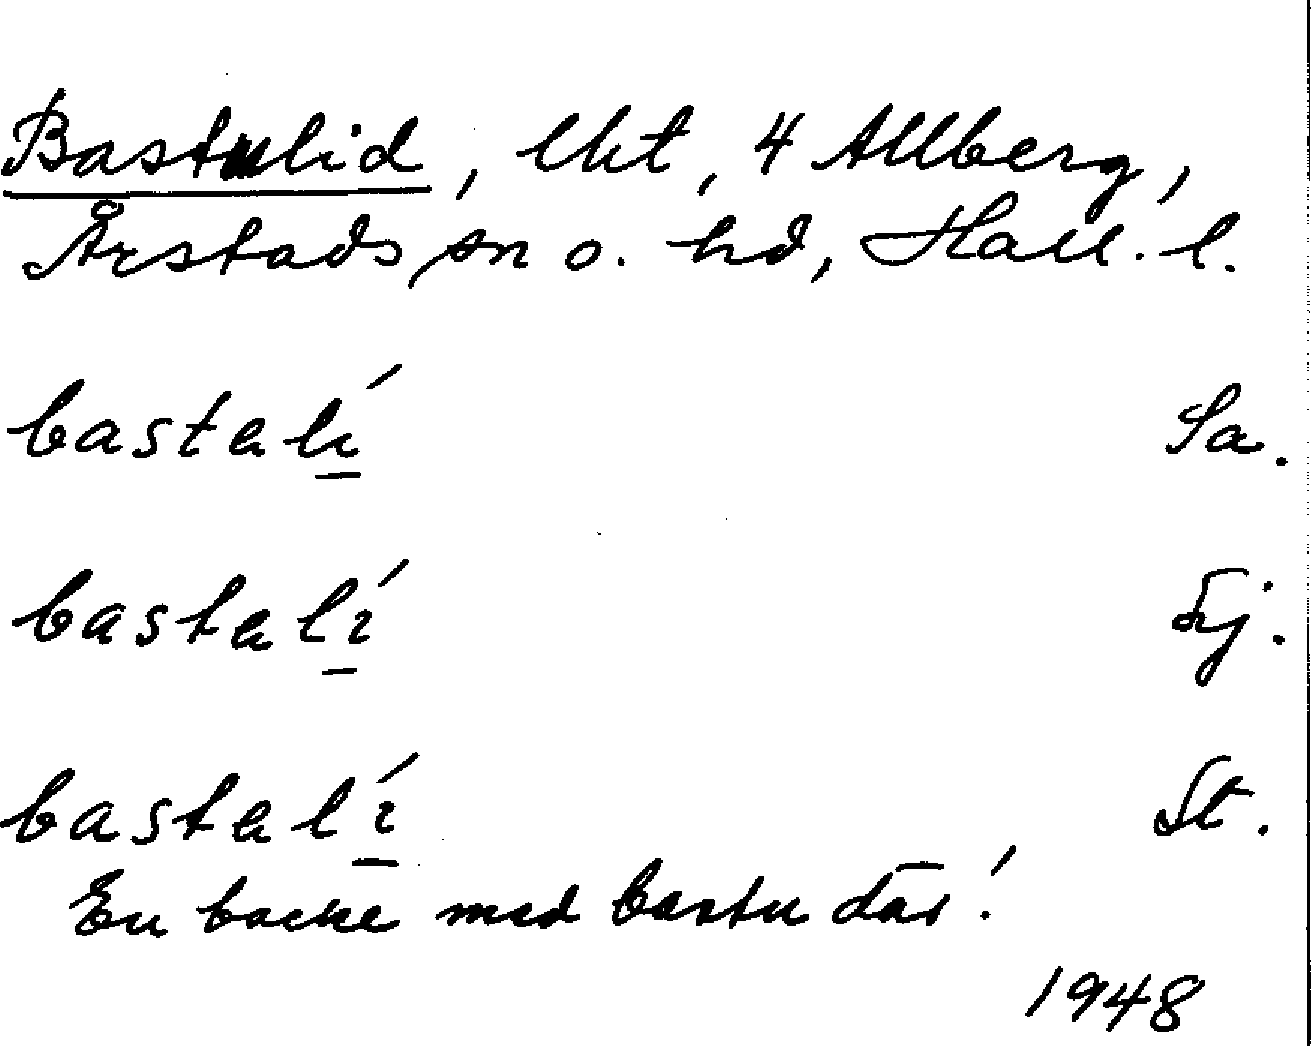 Bastulid, lht, 4 Allberg,
Årstads sn o. hd, Hall. l.
bastalí Sa.
bastalí Sj.
bastalí St.
En backe med bastu där!
1948